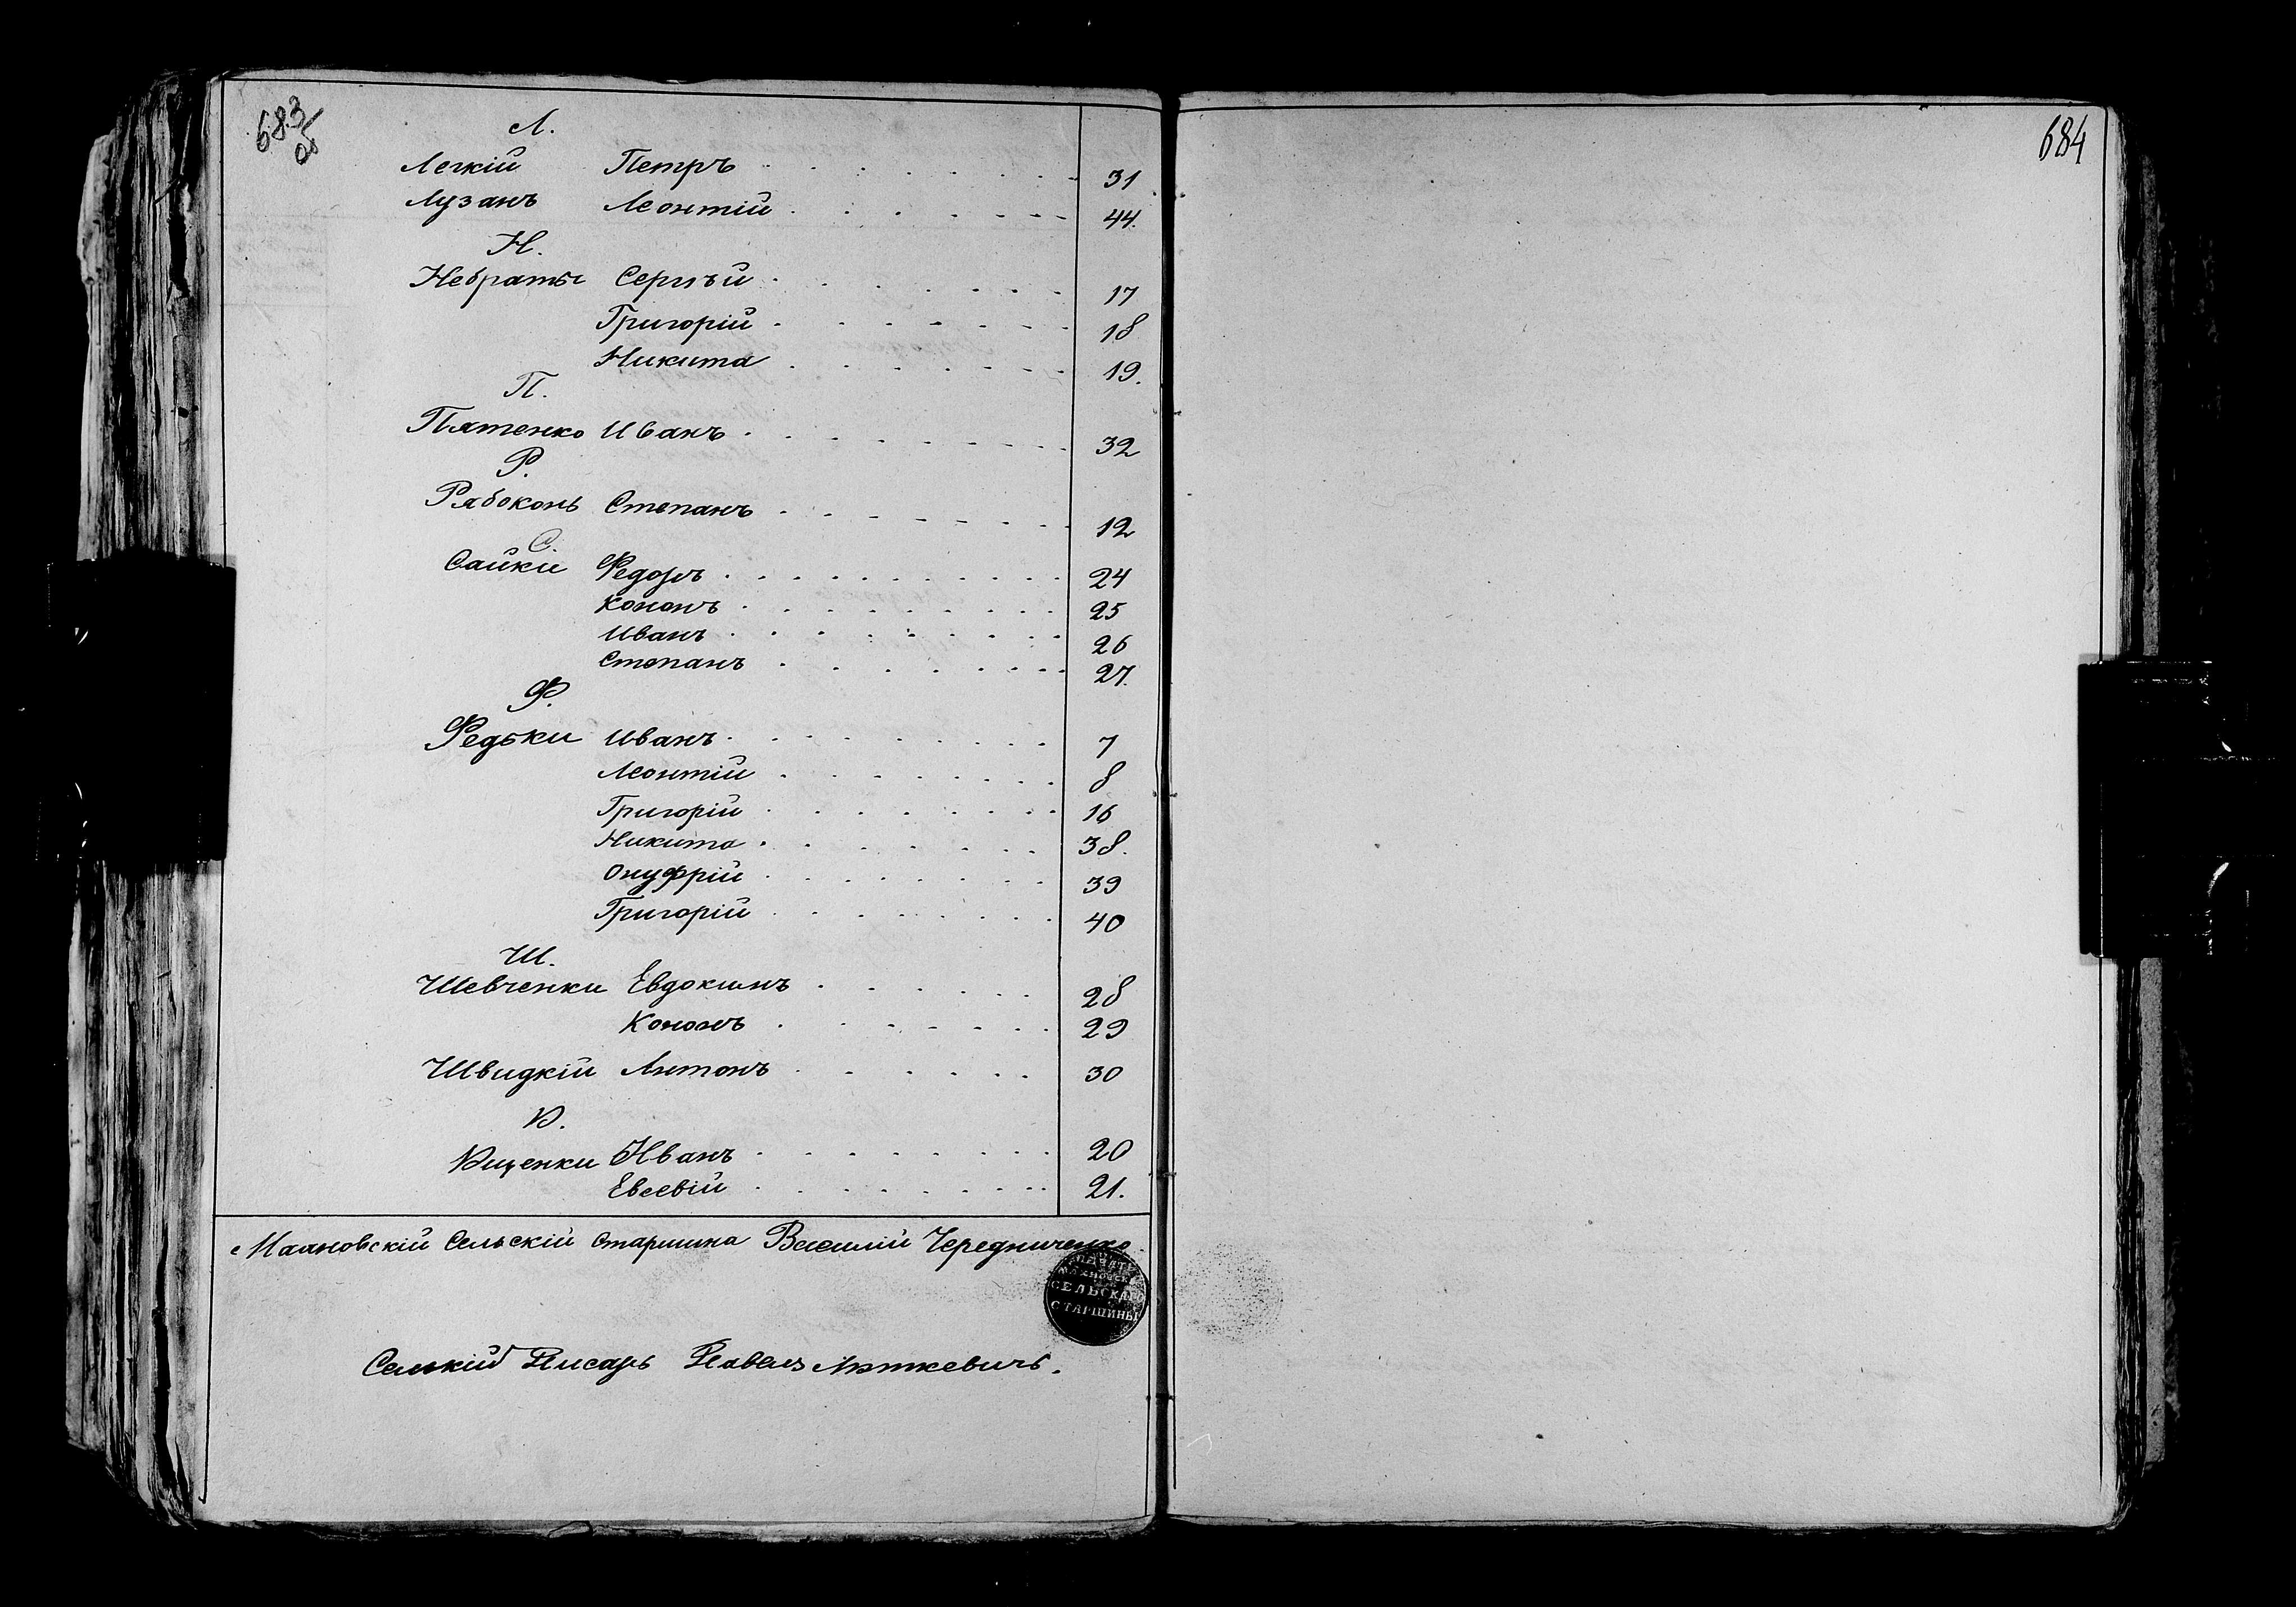 683 об
Л.
Легкій Петръ 31
Лузанъ Леонтій 44.
Н.
Небраты Сергѣй 17
Григорій 18
Никита 19.
П.
Пятенко Иванъ 32
Р.
Рябоконь Степанъ 12
С.
Сайкіи Федоръ 24
Кононъ 25
Иванъ 26
Степанъ 27.
Ф.
Федьки Иванъ 7
Леонтій 8
Григорій 16
Никита 38.
Онуфрій 39
Григорій 40
Ш.
Шевченки Евдокимъ 28
Кононъ 29
Швидкій Антонъ 30
Иванъ 20
Евсевій 21.
Сельскій Старшина Василій Чередниченко
СЕЛЬСКАГО
СТАРШИНЫ
Сельскій Писарь Павелъ
684